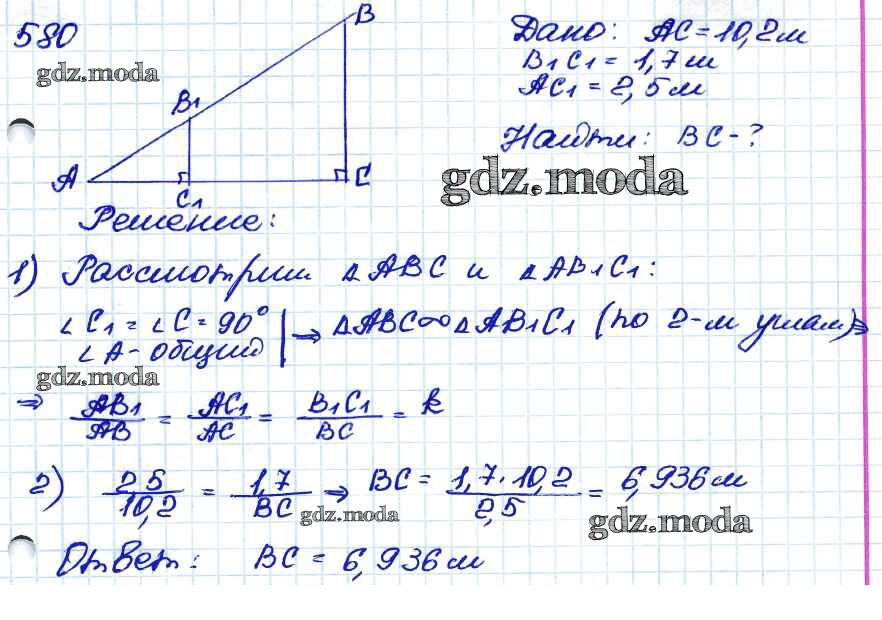 580
Дано: AC = 10,2 м
B₁C₁ = 1,7 м
AC₁ = 2,5 м
Найти: BC - ?
gdz.moda
B
B₁
A
C₁
C
gdz.moda
Решение:
1) Рассмотрим △ABC и △AB₁C₁:
∠C₁ = ∠C = 90°
∠A - общий | ⇒ △ABC ∞ △AB₁C₁ (по 2-м углам) ⇒
gdz.moda
⇒ AB₁/AB = AC₁/AC = B₁C₁/BC = k
2) 2,5/10,2 = 1,7/BC ⇒ BC = 1,7 · 10,2/2,5 = 6,936 м
gdz.moda
gdz.moda
Ответ: BC = 6,936 м